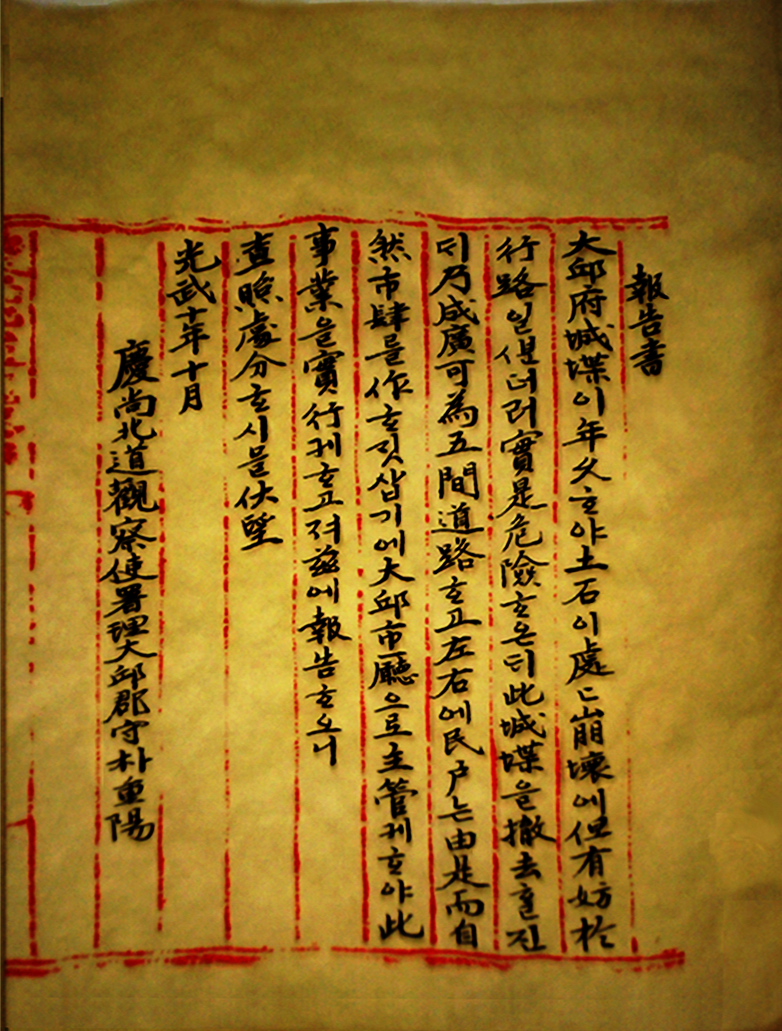 報告書
大邱府城堞이年久ᄒᆞ야土石이處〻崩壞에但有妨於
行路일ᄲᅮᆫ더러實是危險ᄒᆞ온ᄃᆡ此城堞을撤去ᄒᆞᆯ진
ᄃᆡ乃成廣可為五間道路ᄒᆞ고左右에民戶는由是而自
然市肆를作ᄒᆞ깃삽기에大邱市廳으로主管케ᄒᆞ야此
事業을實行케ᄒᆞ고져玆에報告ᄒᆞ오니
査照處分ᄒᆞ시믈伏望
光武十年十月
慶尙北道觀察使署理大邱郡守朴重陽